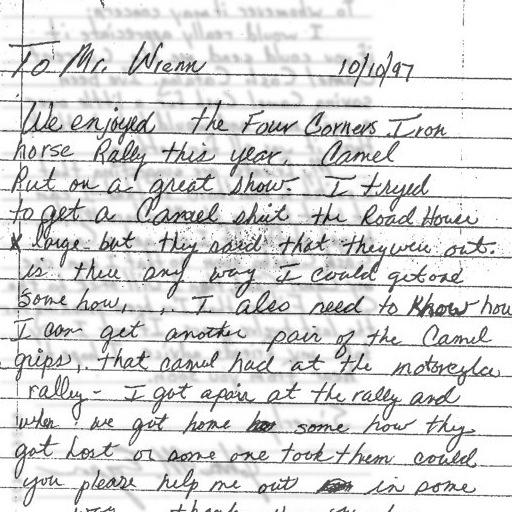 To Mr. Wrenn 10/10/97
We enjoyed the Four Corners Iron
horse Rally this year. Camel
Put on a great show. I tryed
to get a Camel shirt the Road House
X large but they said that they were out.
is there any way I could get one
some how, . I also need to know how
I can get another pair of the Camel
grips, that camel had at the motorcylce
rally - I got a pair at the rally and
when we got home some how they
got lost or some one took them could
you please help me out in some